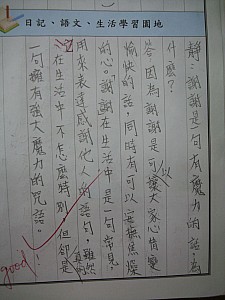 日記、語文、生活學習園地
靜:謝謝是一句有魔力的話,為
什麼?
答因為謝謝是可以讓大家心情變
愉快的話,同時有可以安撫焦燥
的心。「謝謝在生活中是一句常見,
用來表達感謝他人的語句,雖然
在生活中不怎麼特別,但卻是
一句擁有強大魔力的咒語。!
good